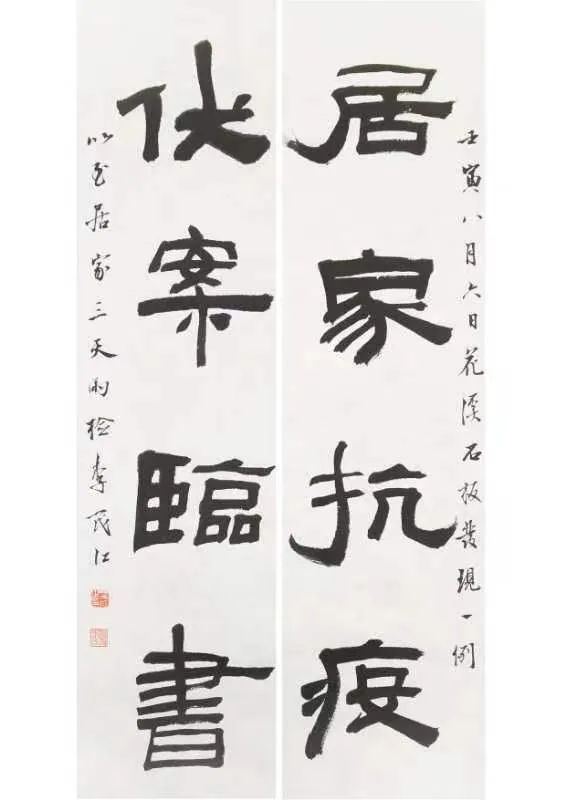 壬寅八月六日花溪石板發現一例
居家抗疫
伏案臨書
以至居家三天兩檢李江